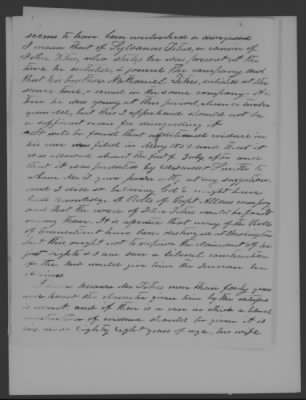 seems to have been overlooked or disregarded
I mean that of Sylvanus Titus, a cousin of
John Titus, who states he was present at the
time he enlisted, & joined the company, and
that his brother Nathaniel Titus, enlisted at the
same time, & served in the same company - It is
true he was young at this period, eleven or twelve
years old, but this I apprehend should not be
a sufficient reason for discarding it.
It will be found that additional evidence in
his case was filed in May 1851 and that it
was advised about the first of July after
that it was presented by
to whom Mr. T. gave power of atty, at my suggestion
and I did so believing Col. might have
had knowledge of Rolls of Capt Allens company
and that the name of John Titus would be found
among them. It is apparent that many of the Rolls
of Connecticut have been destroyed at Washington
but this ought not to deprive the claimant of his
just rights & I am sure a liberal construction
of the law would give him the
I have known Mr Titus more than forty years
and know the character given him by the witnesses
is correct and if there is a case in which a liberal
construction of evidence should be given it is
his, now eighty eight years of age, his wife